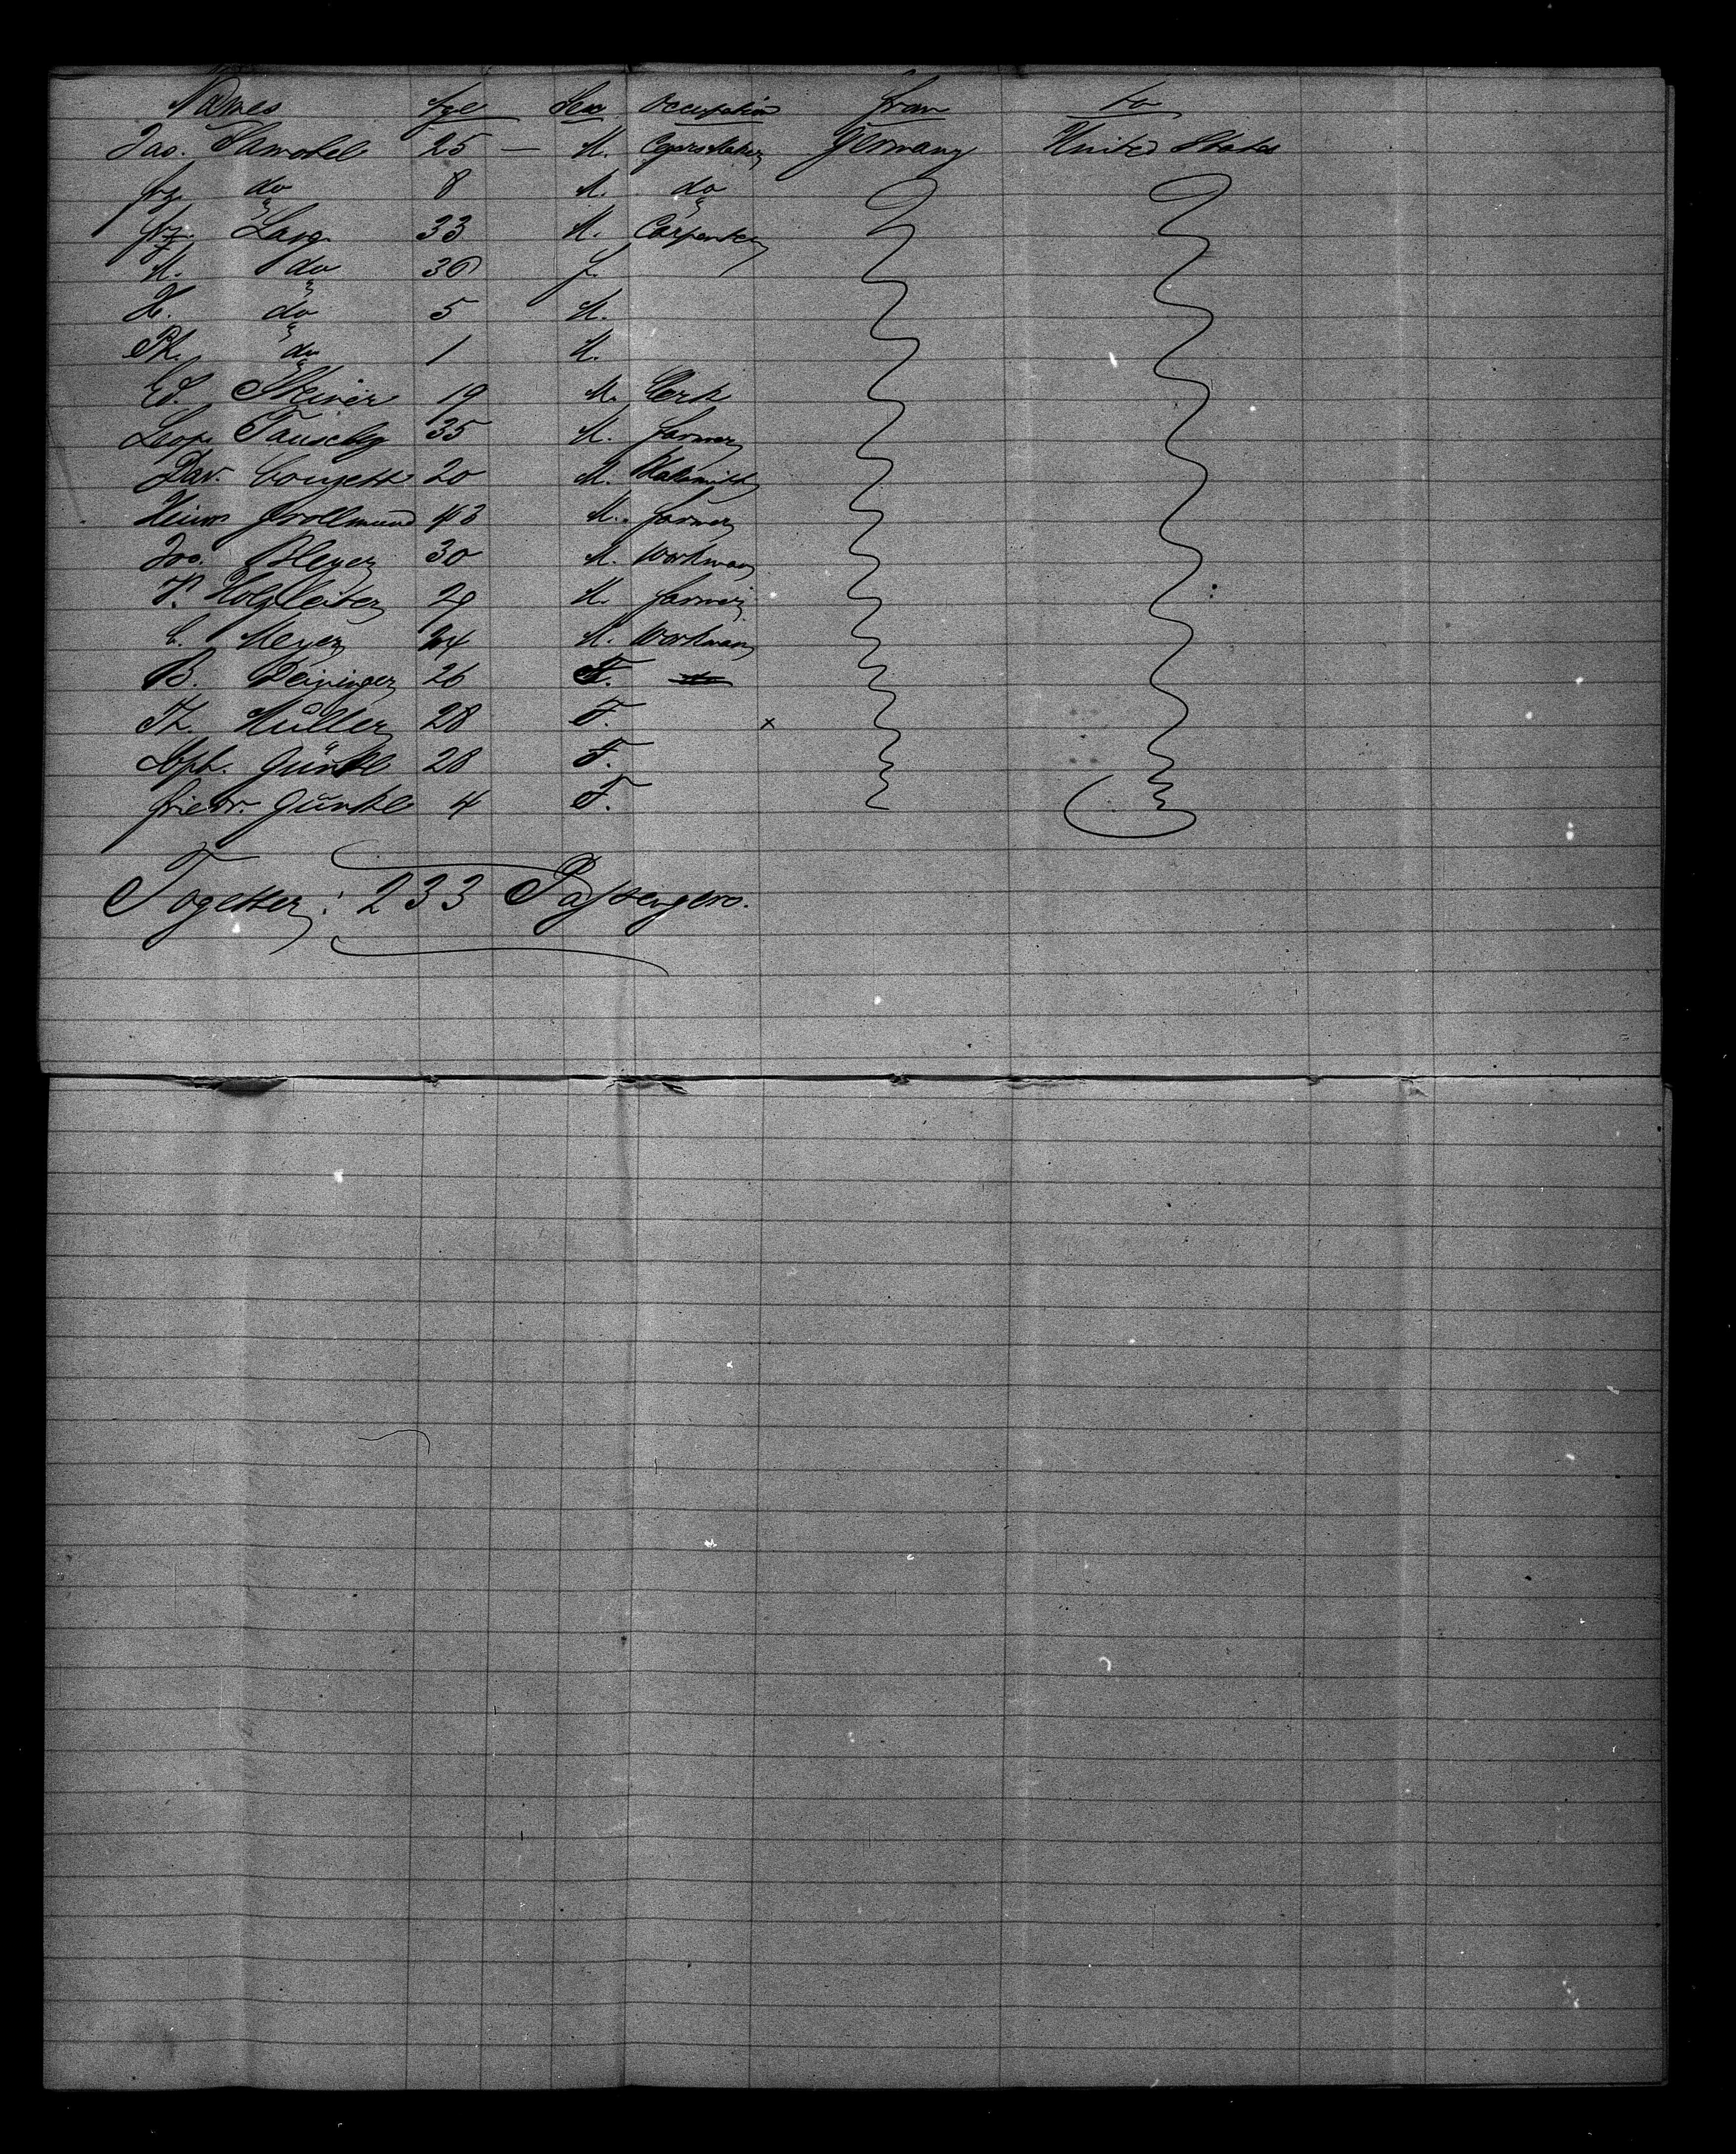 Names Age Sex Occupation from to
Jac. Samstel 25 — M. Cegars Maker Germany United States
frz. do 8 M. do
frz. Lang 33 M. Carpenter
M. do 30 f.
H. do 5 M.
Ph. do 1 M.
Ed. Steiner 19 M. Clerk
Leop. 35 M. farmer
Dav. 20 M. Blaksmith
Heinr. Grollmund 43 M. farmer
Jos. Meyer 30 M. Workman
P. Holzleiter 29 M. farmer
C. Meyer 24 M. Workman
B. Deininger 26 F. do
Th. Müller 28 F. x
Soph. Günkl 28 F.
friedr. Günkl 4 F.
Together: 233 Passengers.